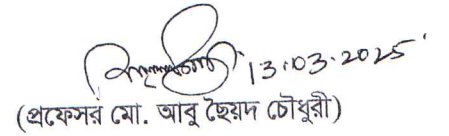 13.03.2025
(প্রফেসর মো. আবু ছৈয়দ চৌধুরী)